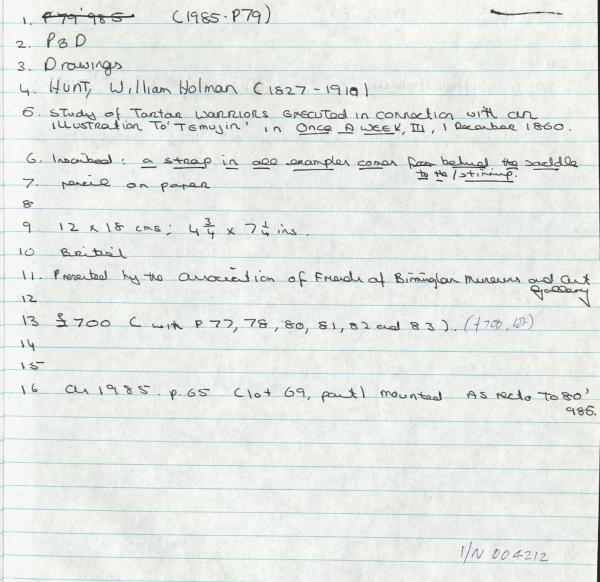 1. P79'985 (1985.P79)
2. P&D
3. Drawings
4. Hunt, William Holman (1827-1910)
5. Study of Tartar Warriors executed in connection with an
illustration to 'Temujin' in Once A Week, III, 1 December 1860.
6. Inscribed: a strap in all examples comes from behind the saddle
to the /stirrup.
7. pencil on paper
8
9 12 x 18 cms; 4 3/4 x 7 1/4 ins.
10 British
11. Presented by the Association of Friends of Birmingham Museums and Art
Gallery
12
13 £700 (with P77, 78, 80, 81, 82 and 83). (£700, lot)
14
15
16 1985. p.65 (lot 69, part) mounted As recto To 80'
985.
I/N 004212